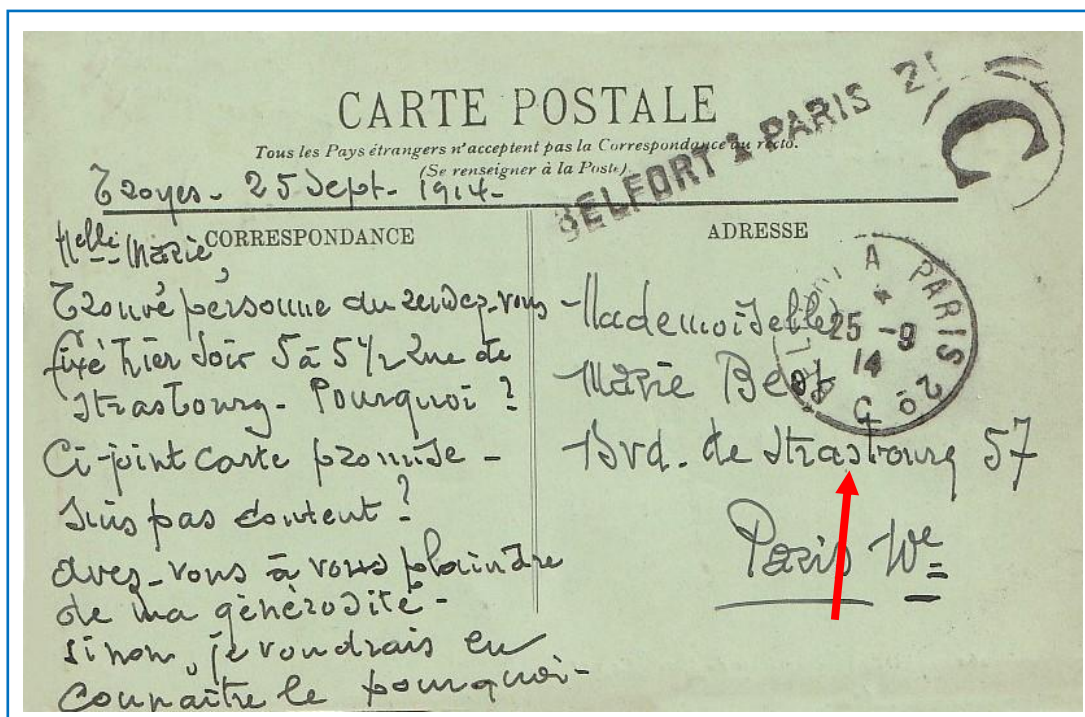 CARTE POSTALE
Tous les Pays étrangers n'acceptent pas la Correspondance au recto.
(Se renseigner à la Poste)
BELFORT À PARIS 2
C
Troyes - 25 Sept - 1914 -
CORRESPONDANCE
Melle Marie,
Trouvé personne du rendez-vous
fixé hier soir 5 à 5 1/2 Rue de
Strasbourg - Pourquoi ?
Ci-joint carte promise -
Suis pas content ?
avez-vous à vous plaindre
de ma générosité -
sinon, je voudrais en
connaître le pourquoi -
ADRESSE
A PARIS 2o
25 -9
14
Mademoiselle
Marie
Bvd. de Strasbourg 57
Paris